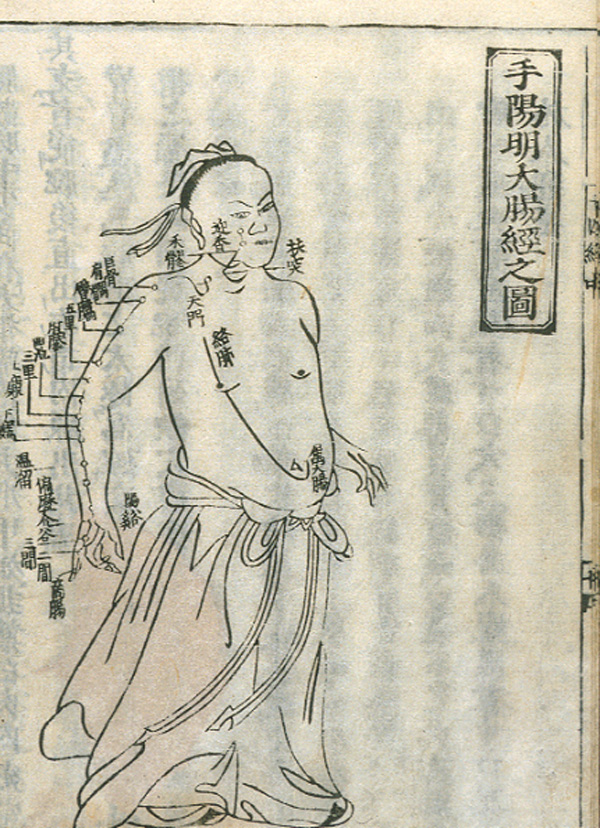 手陽明大腸經之圖
扶突
迎香
禾髎
天鼎
絡肺
巨骨
肩髃
臂臑
五里
肘髎
曲池
三里
上廉
下廉
溫溜
偏歷
合谷
陽谿
三間
二間
商陽
屬大腸